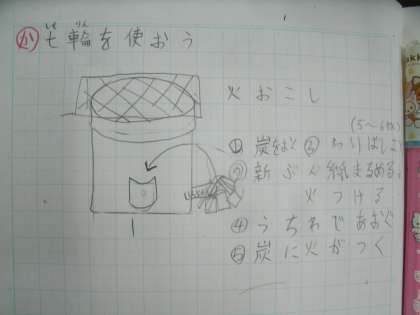 か 七輪を使おう
しち りん
火おこし
(5〜6本)
① 炭をおく ③ わりばし
② 新ぶん紙まるめる。
火つける
④ うちわであおぐ
⑤ 炭に火がつく